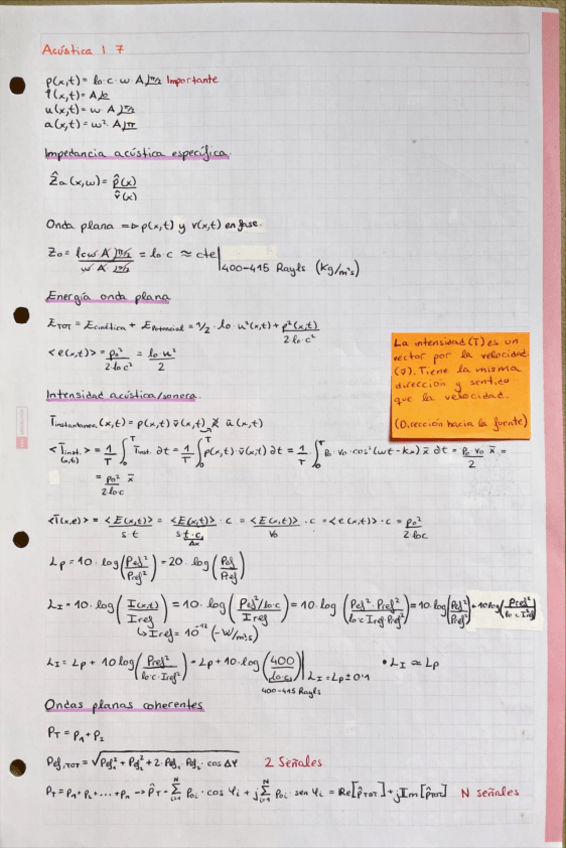 Acústica 1 7
p(x,t) = ρo·c·w·A∠π/2 Importante
f(x,t) = A∠0
u(x,t) = w·A∠π/2
a(x,t) = w²·A∠π
Impedancia acústica específica.
Ẑa(x,w) = p̂(x)/v̂(x)
Onda plana => p(x,t) y v(x,t) en fase.
Zo = ρocw A∠π/2 / w·A·∠π/2 = ρo·c ≈ cte | 400-415 Rayls (kg/m²s)
Energía onda plana
ETOT = Ecinética + EPotencial = 1/2·ρo·u²(x,t) + p²(x,t)/2ρo·c²
<e(x,t)> = po²/2ρo·c² = ρo u²/2
La intensidad (I) es un
vector por la velocidad
(v̄). Tiene la misma
dirección y sentido
que la velocidad.
(Dirección hacia la fuente)
Intensidad acústica/sonora.
Īinstantanea(x,t) = p(x,t) v̄(x,t) ū(x,t)
<Īinst.(x,t)> = 1/T ∫₀ᵀ Īinst. ∂t = 1/T ∫₀ᵀ p(x,t)·v̄(x,t) ∂t = 1/T ∫₀ᵀ Po·vo·cos²(wt-kx) x̄ ∂t = Po·vo/2 x̄ =
= po²/2ρoc x̄
<Ī(x,t)> = <E(x,t)>/s·t = <E(x,t)>/s·t·c/Δx ·c = <E(x,t)>/Vo ·c = <e(x,t)>·c = po²/2ρoc
Lp = 10·log(Pef²/Pref²) = 20·log(Pef/Pref)
LI = 10·log(I(x,t)/Iref) = 10·log(Pef²/ρo·c/Iref) = 10·log(Pef²·Pref²/ρo·c·Iref·Pref²) = 10·log(Pef²/Pref²) + 10·log(Pref²/ρo·c·Iref)
↳ Iref = 10⁻¹² (W/m²s)
LI = Lp + 10log(Pref²/ρo·c·Iref²) = Lp + 10·log(400/ρo·c) | LI = Lp ± 0'1 • LI ≈ Lp
400-415 Rayls
Ondas planas coherentes
PT = p1 + p2
Pef,TOT = √(Pef1² + Pef2² + 2·Pef1·Pef2·cos Δφ) 2 Señales
PT = p1 + p2 + ... + pn → p̂T = Σᴺi=1 poi·cos φi + j Σᴺi=1 poi·sen φi = Re[p̂TOT] + jIm[p̂TOT] N señales